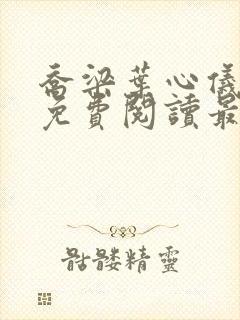 喬梁葉心儀
免費閱讀最
骷髏精靈